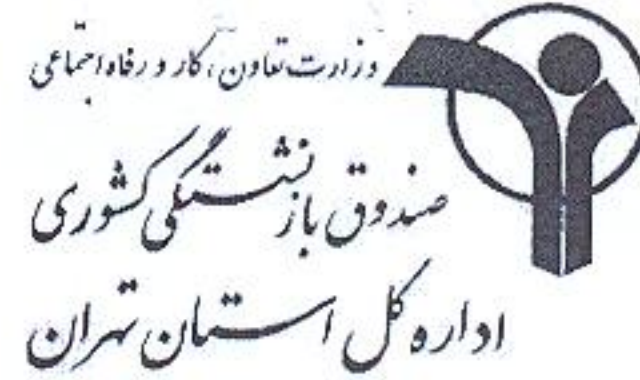 وزارت تعاون، کار و رفاه اجتماعی
صندوق بازنشستگی کشوری
اداره کل استان تهران